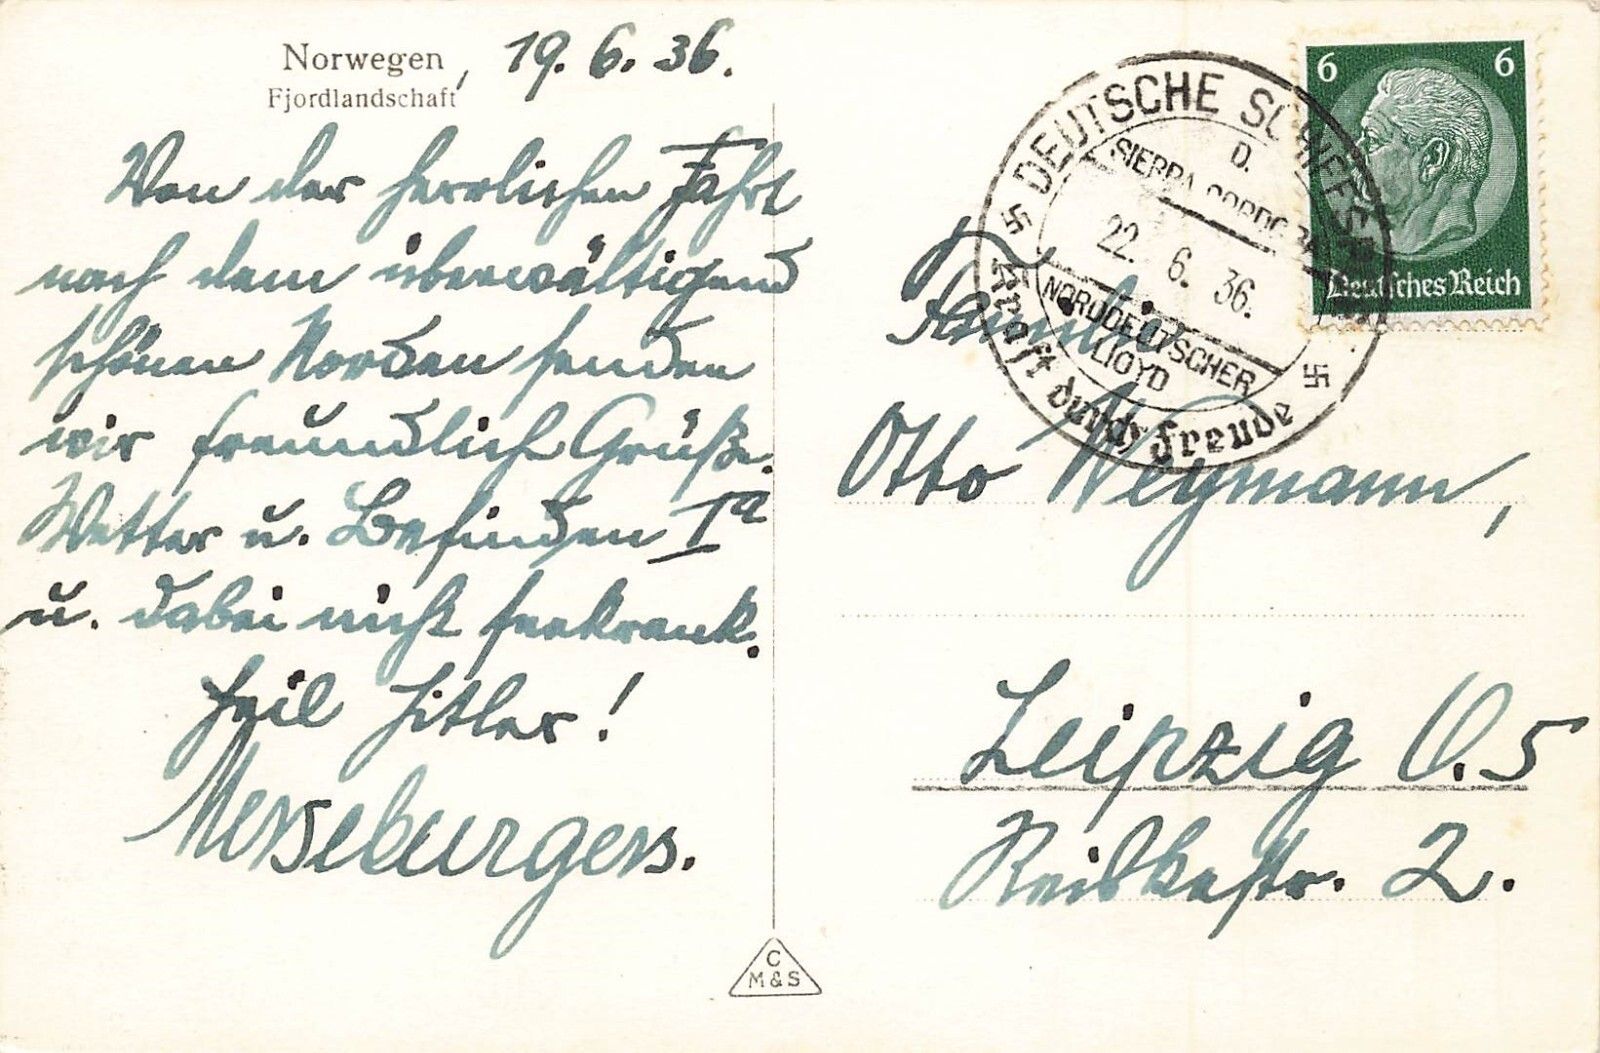 Norwegen, 19. 6. 36.
Fjordlandschaft
Von der herrlichen Fahrt
nach dem überwältigend
schönen Norden senden
wir freundlich Grüße.
Wetter u. Befinden Ia
u. dabei nicht seekrank.
Heil Hitler!
Merseburgers.
C
M&S
6 6
Deutsches Reich
DEUTSCHE SCHIFFSPOST
D.
SIERRA CORDOBA
22. 6. 36.
NORDDEUTSCHER
LLOYD
Kraft durch Freude
Familie
Otto Weymann,
Leipzig O. 5
str. 2.